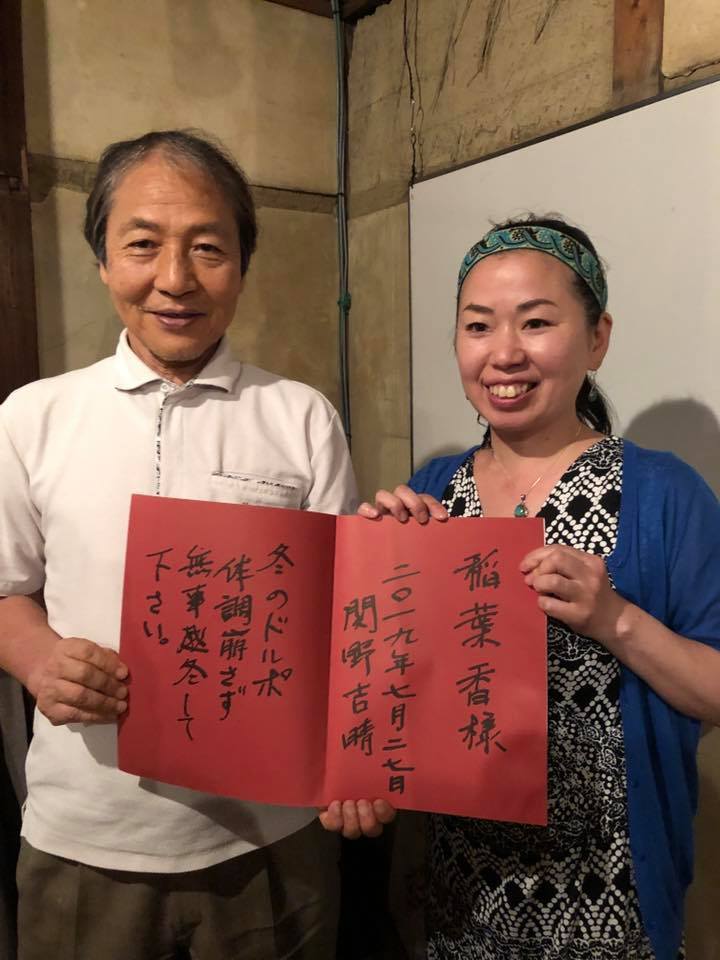 稲葉香様
二〇一九年七月二七日
関野吉晴
冬のドルポ
体調崩さず
無事越冬して
下さい。